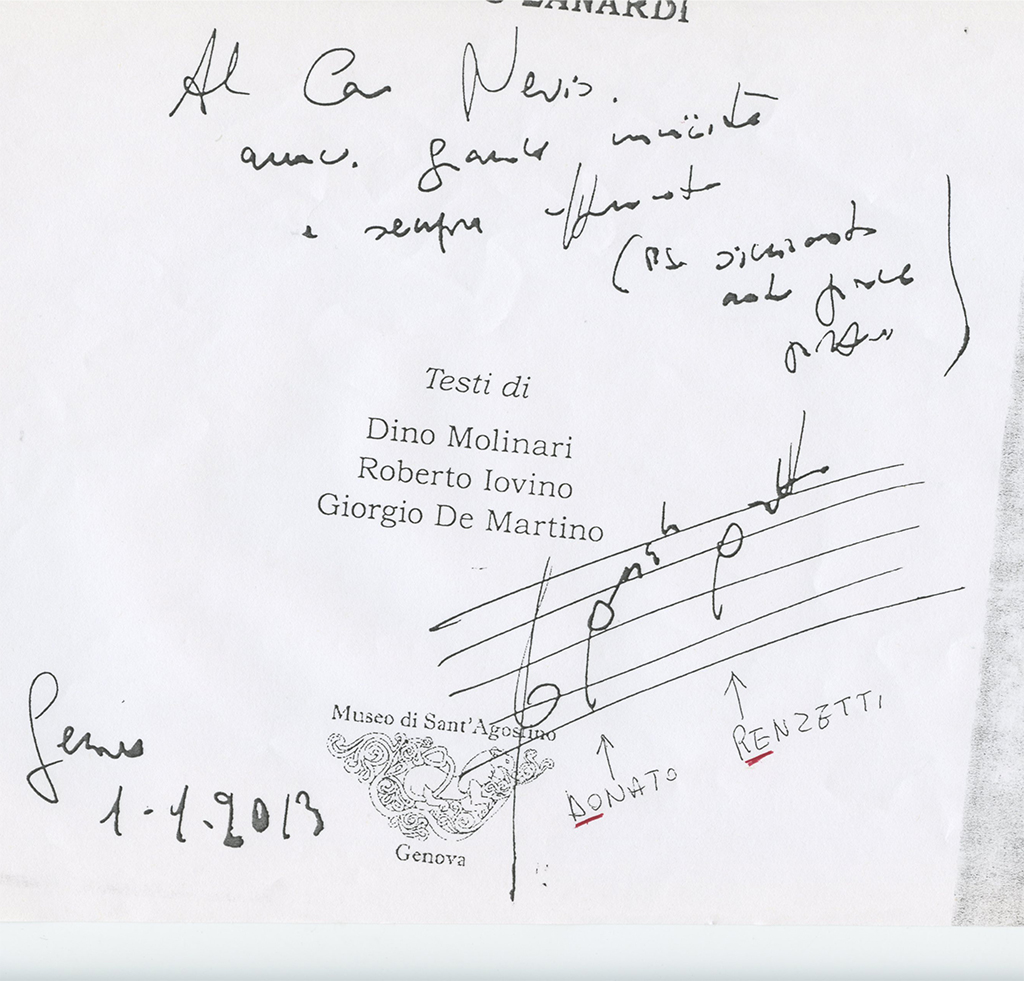 ZANARDI
Al Caro Nevio.
amico. grande musicista
e sempre
(PS.
Testi di
Dino Molinari
Roberto Iovino
Giorgio De Martino
RENZETTI
DONATO
Museo di Sant'Agostino
Genova
Genova
1-1.2013